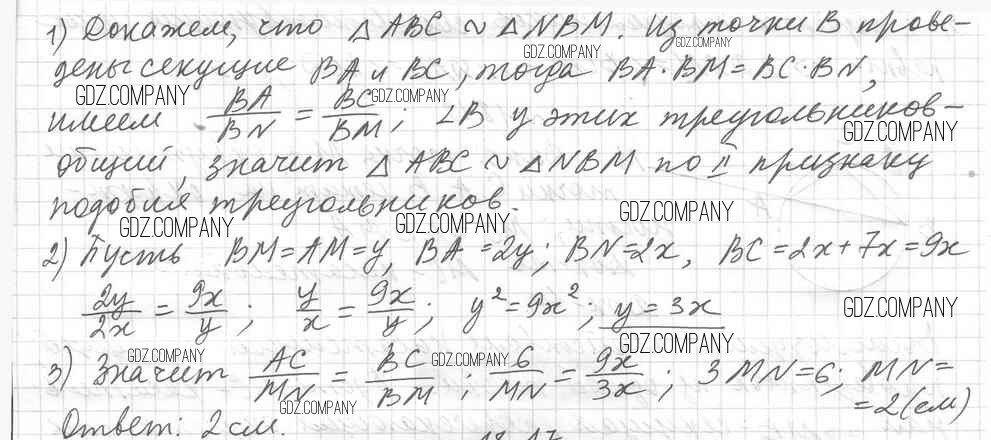 1) Докажем, что △ ABC ∼ △ NBM. Из точки B прове-
дены секущие BA и BC, тогда BA · BM = BC · BN,
имеем BA/BN = BC/BM; ∠B у этих треугольников -
общий, значит △ ABC ∼ △ NBM по II признаку
подобия треугольников.
2) Пусть BM = AM = y, BA = 2y; BN = 2x, BC = 2x + 7x = 9x
2y/2x = 9x/y; y/x = 9x/y; y² = 9x²; y = 3x
3) Значит AC/MN = BC/BM; 6/MN = 9x/3x; 3MN = 6; MN =
= 2 (см)
Ответ: 2 см.
GDZ.COMPANY
GDZ.COMPANY
GDZ.COMPANY
GDZ.COMPANY
GDZ.COMPANY
GDZ.COMPANY
GDZ.COMPANY
GDZ.COMPANY
GDZ.COMPANY
GDZ.COMPANY
GDZ.COMPANY
GDZ.COMPANY
GDZ.COMPANY